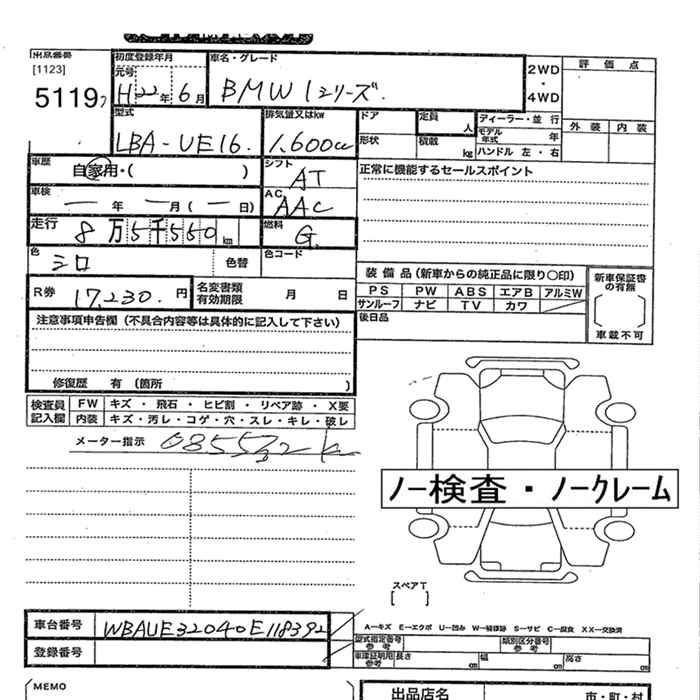 出品番号
[1123]
5119
初度登録年月
元号
H22年 6月
車名・グレード
BMW 1シリーズ
2WD
・
4WD
評価点
外装 内装
型式
LBA-UE16.
排気量又はkw
1,600cc
ドア
形状
定員 人
積載 kg
ディーラー・並行
モデル年式 年
ハンドル 左・右
車歴
自家用・( )
シフト
AT
正常に機能するセールスポイント
車検
― 年 ― 月(― 日)
AC
AAC
走行
8万5千550 km
燃料
G.
色
シロ
色替
色コード
装備品(新車からの純正品に限り〇印)
PS PW ABS エアB アルミW
サンルーフ ナビ TV カワ
後日品
新車保証書の有無
[ ]
車載不可
R券
17,230.円
名変書類有効期限
月 日
注意事項申告欄(不具合内容等は具体的に記入して下さい)
修復歴 有(箇所 )
検査員記入欄
FW キズ・飛石・ヒビ割・リペア跡・X要
内装 キズ・汚レ・コゲ・穴・スレ・キレ・破レ
メーター指示
ノー検査・ノークレーム
スペアT
[ ]
車台番号
WBAUE32040E118392
登録番号
A-キズ E-エクボ U-凹み W-補修跡 S-サビ C-腐食 XX-交換済
型式指定番号参考
類別区分番号参考
車庫証明用参考
長さ cm 幅 cm 高さ cm
MEMO
出品店名
市・町・村